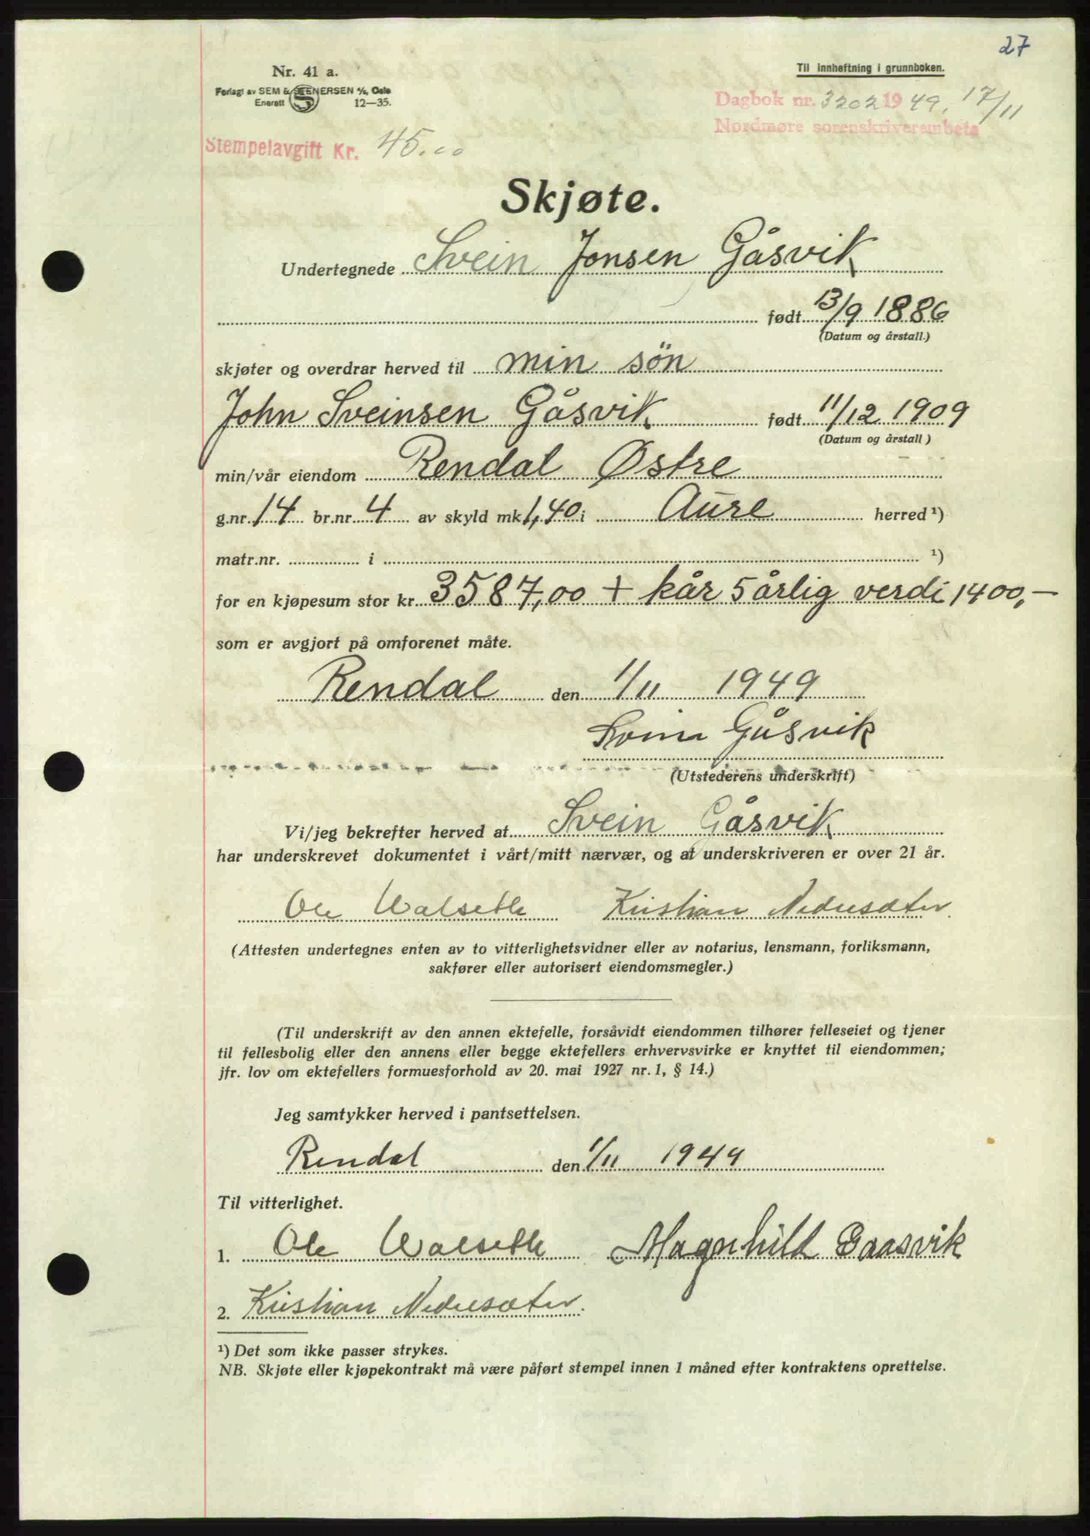 27
Nr. 41 a.
Forlagt av SEM & STENERSEN A/S, Oslo
Enerett 12—35.
Til innheftning i grunnboken.
Dagbok nr. 3202 1949, 17/11
Nordmøre sorenskriverembete
Stempelavgift Kr. 45.00
Skjøte.
Undertegnede Svein Jonsen Gåsvik
født 13/9 1886
(Datum og årstall.)
skjøter og overdrar herved til min sön
John Sveinsen Gåsvik født 11/12 1909
(Datum og årstall)
min/vår eiendom Rendal Østre
g.nr. 14 br.nr. 4 av skyld mk. 1,40 i Aure herred ¹)
matr.nr. i ¹)
for en kjøpesum stor kr. 3587,00 + kår 5 årlig verdi 1400,—
som er avgjort på omforenet måte.
Rendal den 1/11 1949
Svein Gåsvik
(Utstederens underskrift)
Vi/jeg bekrefter herved at Svein Gåsvik
har underskrevet dokumentet i vårt/mitt nærvær, og at underskriveren er over 21 år.
Ole Walseth Kristian Nedresæter
(Attesten undertegnes enten av to vitterlighetsvidner eller av notarius, lensmann, forliksmann,
sakfører eller autorisert eiendomsmegler.)
(Til underskrift av den annen ektefelle, forsåvidt eiendommen tilhører felleseiet og tjener
til fellesbolig eller den annens eller begge ektefellers erhvervsvirke er knyttet til eiendommen;
jfr. lov om ektefellers formuesforhold av 20. mai 1927 nr. 1, § 14.)
Jeg samtykker herved i pantsettelsen.
Rendal den 1/11 1949
Til vitterlighet.
1. Ole Walseth Magnhild Gaasvik
2. Kristian Nedresæter
¹) Det som ikke passer strykes.
NB. Skjøte eller kjøpekontrakt må være påført stempel innen 1 måned efter kontraktens oprettelse.